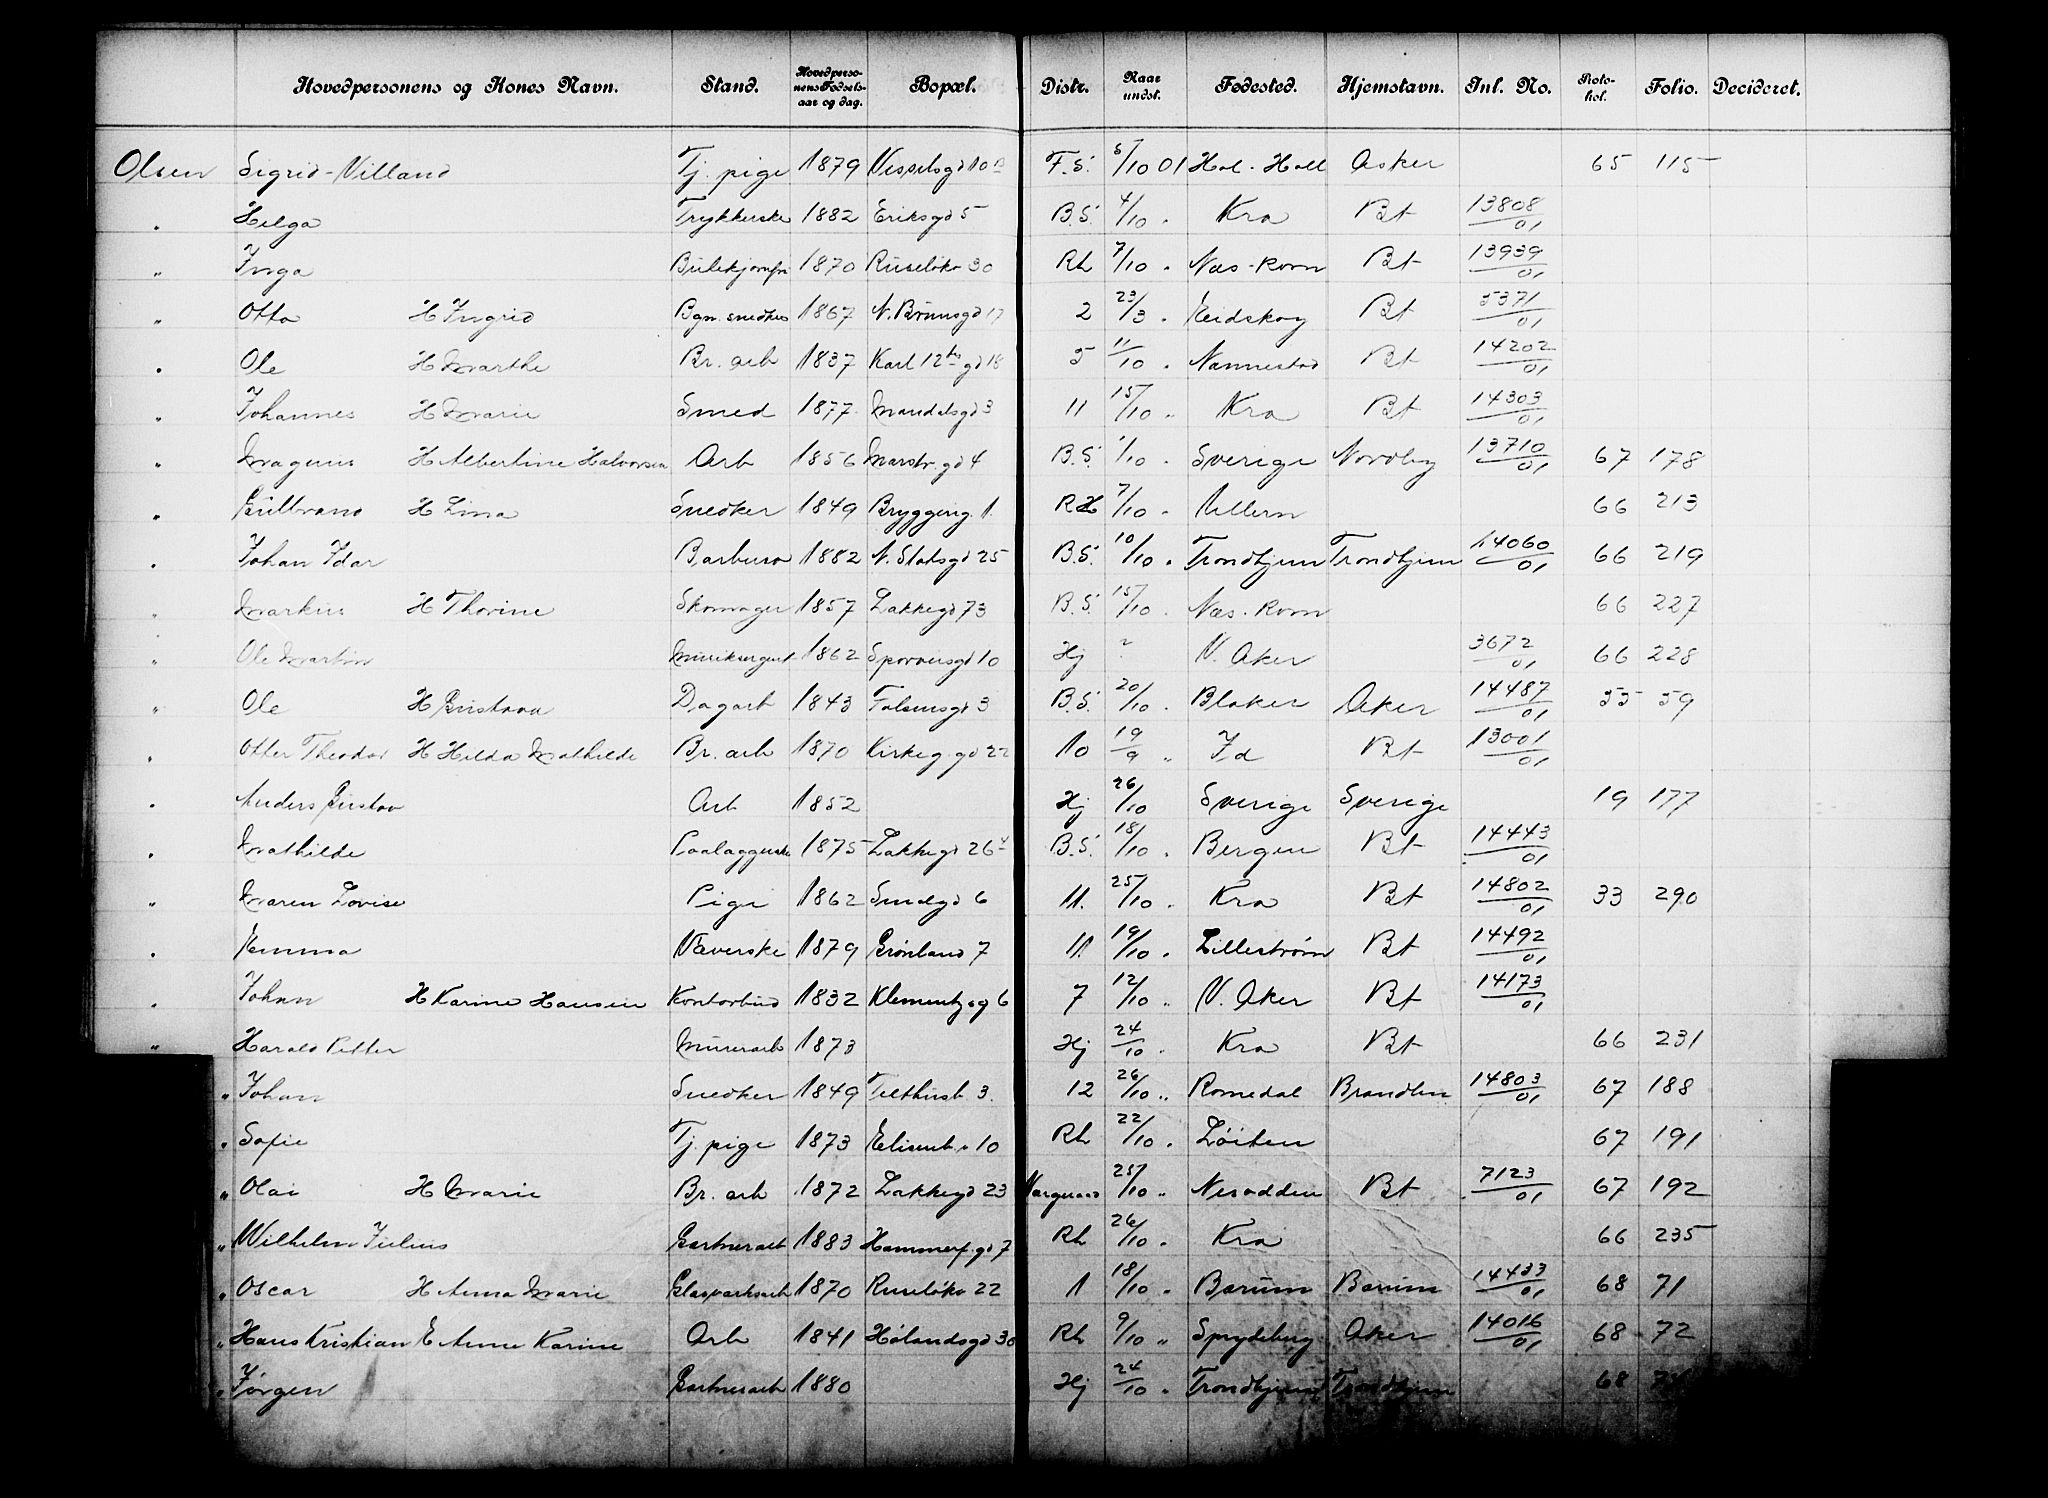 Hovedpersonens og Kones Navn. Stand. Hovedpersonens Fødselsaar og dag. Bopæl. Distr. Naar undst. Fødested. Hjemstavn. Inl. No. Protokol. Folio. Decideret.
Olsen Sigrid Tj. pige 1879 F.S. 5/10 01 Hol-Holl Asker 65 115
" Helga Trykkerske 1882 Eriksgd 5 B.S. 4/10 " Kra Bt 13808/01
" Inga 1870 Ruseløkv 30 Rh 7/10 " Næs-Rom Bt 13939/01
" Otto H Ingrid Bgn. snedker 1867 N. Brunsgd 17 2 23/3 " Eidskog Bt 5371/01
" Ole H Marthe Br. arb 1837 Karl 12tes gd 18 5 11/10 " Nannestad Bt 14202/01
" Johannes H Marie Smed 1877 Mandalsgd 3 11 15/10 " Kra Bt 14303/01
" Magnus H Albertine Halvorsen Arb 1856 Marstr. gd 4 B.S. 1/10 " Sverige Nordby 13710/01 67 178
" Gulbrand H Lina Snedker 1849 Bryggerig. 1. RH 7/10 " Ullern 66 213
" Johan Idar Barbersv 1882 N. Slotsgd 25 B.S. 10/10 " Trondhjem Trondhjem 14060/01 66 219
" Markus H Thorine Skomager 1857 Lakkegd 73 B.S. 15/10 " Næs-Rom 66 227
" Ole Martin Musiksergent 1862 Sporveisgd 10 Hj ? V. Aker 3672/01 66 228
" Ole H Gustava Dagarb 1843 Falsensgd 3 B.S. 20/10 " Blaker Aker 14487/01 55 59
" Otter Theodor H Hilda Mathilde Br. arb 1870 Kirkeg. gd 22 10 19/9 " Id Bt 13001/01
" Anders Gustav Arb 1852 Hj 26/10 Sverige Sverige 19 177
" Mathilde Paalæggerske 1875 Lakkegd 26 B.S. 18/10 " Bergen Bt 14443/01
" Maren Lovise Pige 1862 Smedgd 6 11. 25/10 " Kra Bt 14802/01 33 290
" Emma Væverske 1879 Grønland 7 11. 19/10 " Lillestrøm Bt 14492/01
" Johan H Karine Hansen Kontorbud 1832 Klementsgd 6 7 12/10 " V. Aker Bt 14173/01
" Harald Petter Murerarb 1873 Hj 24/10 " Kra Bt 66 231
" Johan Snedker 1849 Telthusb 3. 12 26/10 " Romedal 14803/01 67 188
" Sofie Tj. pige 1873 Elisenb. v 10 Rh 22/10 " Løiten 67 191
" Olai H Marie Br. arb 1872 Lakkegd 23 25/10 " Nesodden Bt 7123/01 67 192
" Wilhelm Julius Gartnerarb 1883 Hammerf. gd 7 Rh 26/10 " Kra 66 235
" Oscar H Anna Marie Glasværksarb 1870 Ruseløkv 22 1 18/10 " Bærum Bærum 14433/01 68 71
" Hans Kristian E Anne Karine Arb 1841 Hølandsgd 30 Rh 9/10 " Spydeberg Aker 14016/01 68 72
" Jørgen Gartnerarb 1880 Hj 24/10 " Trondhjem Trondhjem 68